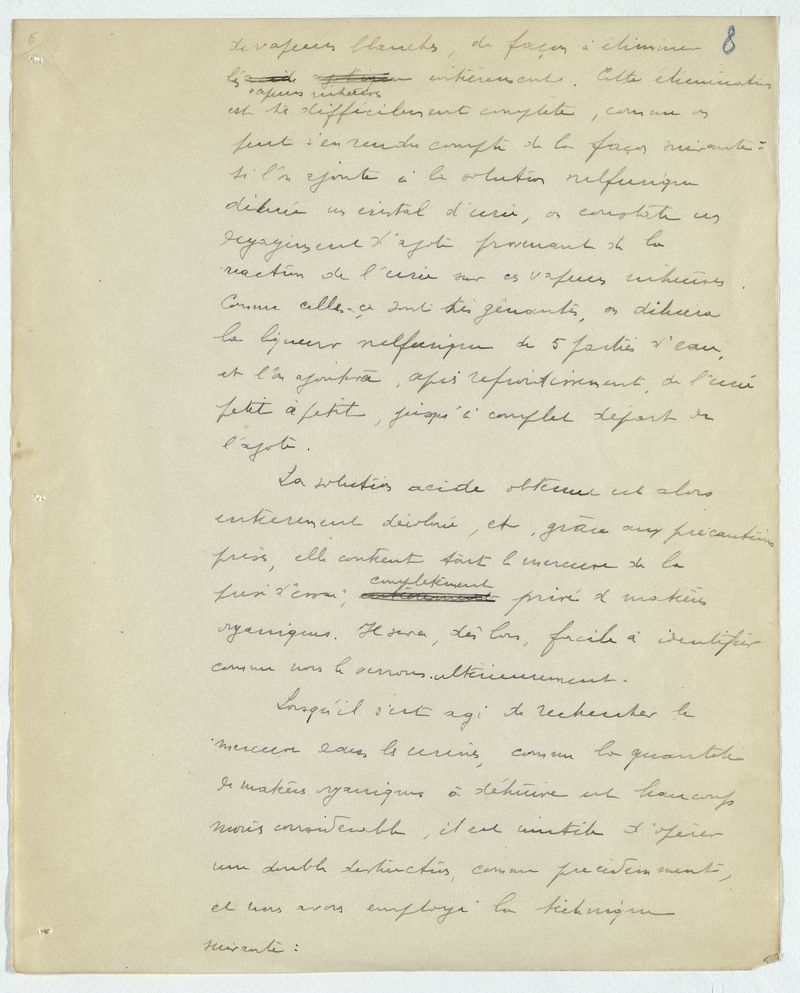 6
8
de vapeurs blanches, de façon à éliminer
les acide azotique entièrement. Cette élimination
vapeurs nitreuses
est très difficilement complète, comme on
peut s'en rendre compte de la façon suivante :
si l'on ajoute à la solution sulfurique
diluée un cristal d'urée, on constate un
dégagement d'azote provenant de la
réaction de l'urée sur ces vapeurs nitreuses.
Comme celles-ci sont très gênantes, on diluera
la liqueur sulfurique de 5 parties d'eau,
et l'on ajoutera, après refroidissement, de l'urée
petit à petit, jusqu'à complet départ de
l'azote.
La solution acide obtenue est alors
entièrement décolorée, et, grâce aux précautions
prises, elle contient tout le mercure de la
prise d'essai, entièrement privé de matières
complètement
organiques. Il sera, dès lors, facile à identifier
comme nous le verrons ultérieurement.
Lorsqu'il s'est agi de rechercher le
mercure dans les urines, comme la quantité
de matières organiques à détruire est beaucoup
moins considérable, il est inutile d'opérer
une double destruction, comme précédemment,
et nous avons employé la technique
suivante :